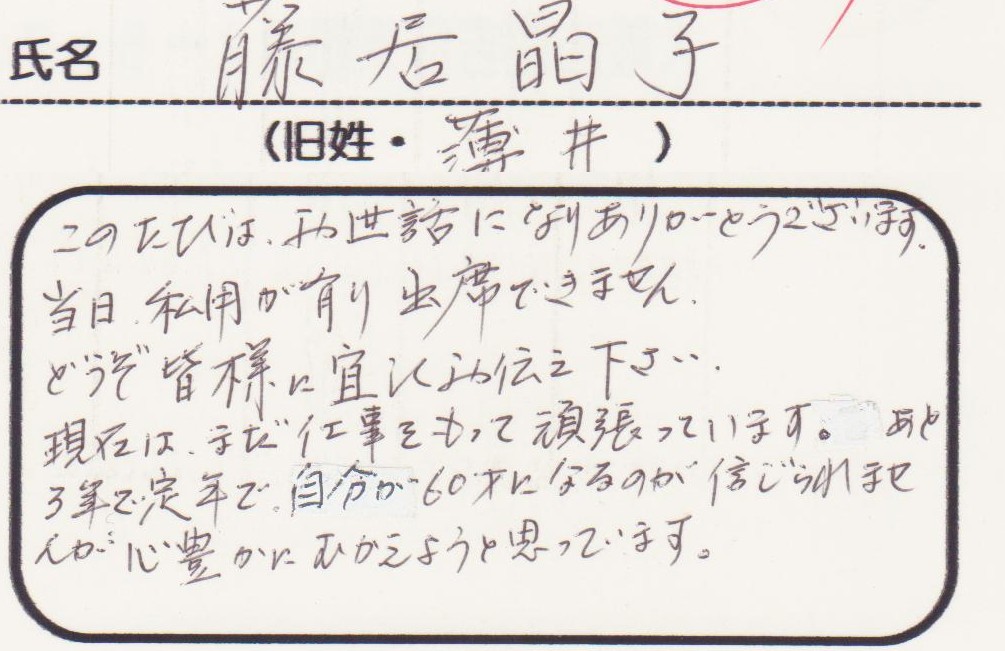 氏名 藤居晶子
(旧姓・薄井)
このたびは、お世話になりありがとうございます。
当日、私用が有り出席できません。
どうぞ皆様に宜しくお伝え下さい。
現在は、まだ仕事をもって頑張っています。あと
3年で定年で、自分が60才になるのが信じられませ
んが心豊かにむかえようと思っています。